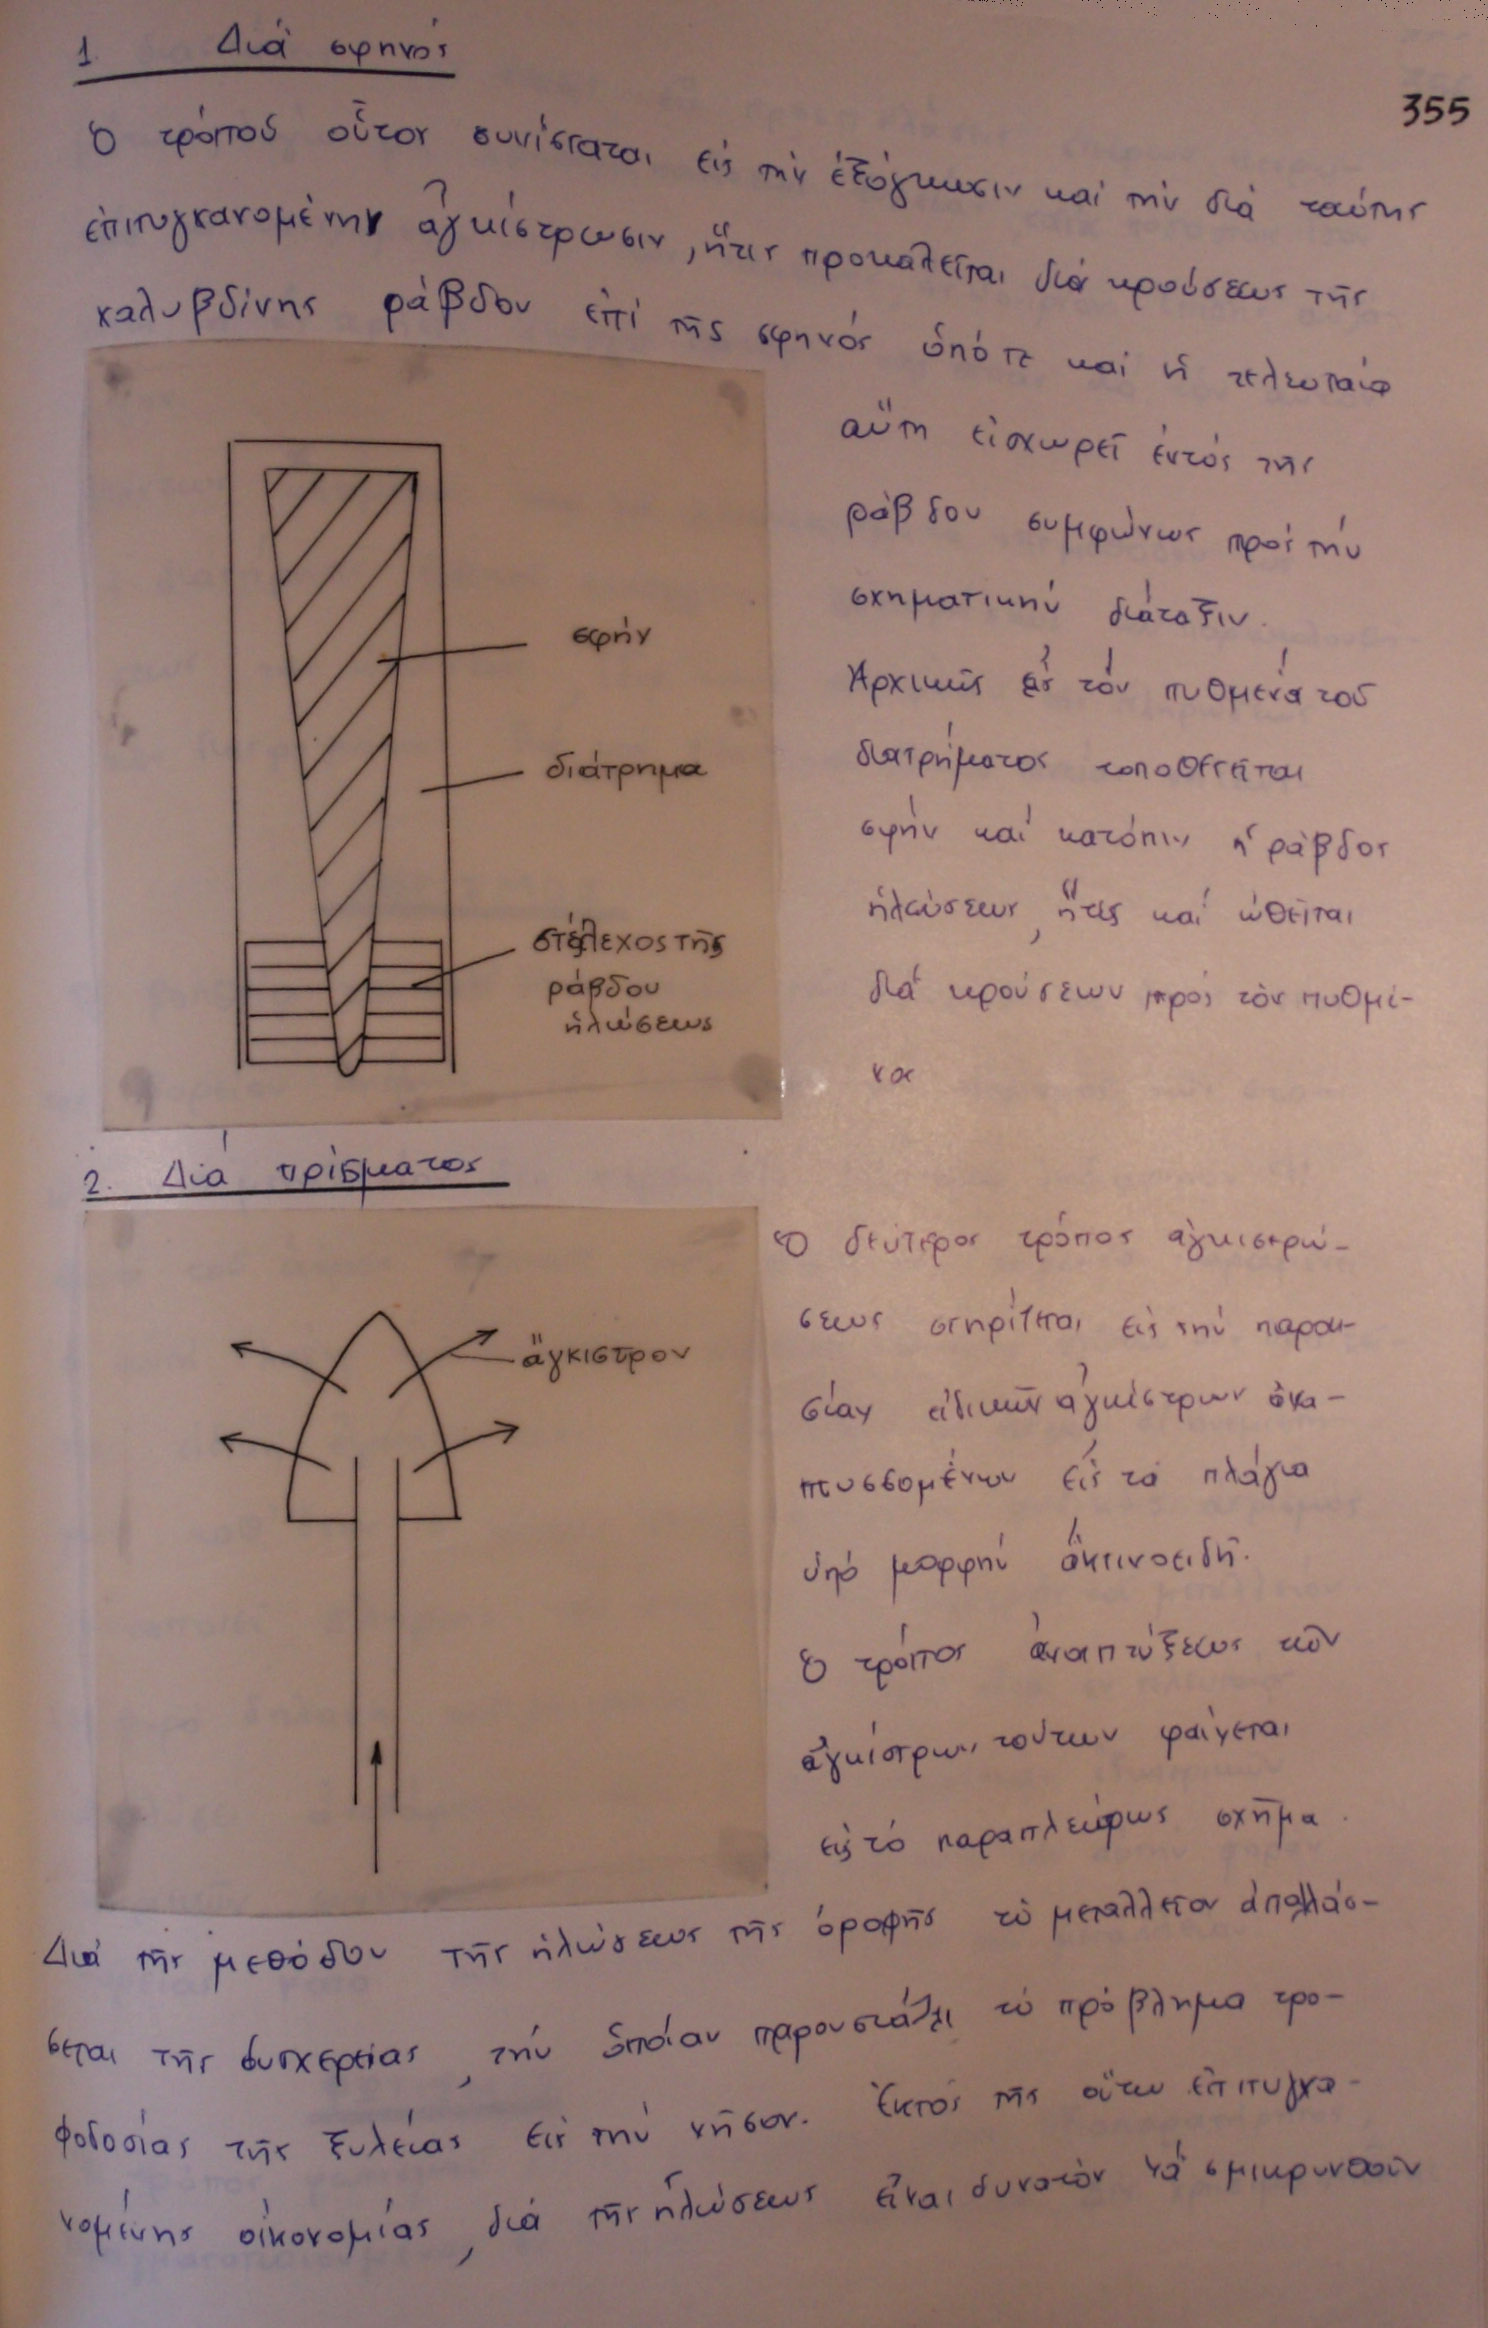 355
1. Διά σφηνός
Ὁ τρόπος οὗτος συνίσταται εἰς τήν ἐξόγκωσιν καί τήν διά ταύτης
ἐπιτυγχανομένην ἀγκίστρωσιν, ἥτις προκαλεῖται διά κρούσεως τῆς
χαλυβδίνης ράβδου ἐπί τῆς σφηνός ὁπότε καί ἡ τελευταία
αὕτη εἰσχωρεῖ ἐντός τῆς
ράβδου συμφώνως πρός τήν
σχηματικήν διάταξιν.
Ἀρχικῶς εἰς τόν πυθμένα τοῦ
διατρήματος τοποθετεῖται
σφήν καί κατόπιν ἡ ράβδος
ἡλώσεως, ἥτις καί ὠθεῖται
διά κρούσεων πρός τόν πυθμέ-
να
σφήν
διάτρημα
στέλεχος τῆς
ράβδου
ἡλώσεως
2. Διά πρίσματος
Ὁ δεύτερος τρόπος ἀγκιστρώ-
σεως στηρίζεται εἰς τήν παρου-
σίαν εἰδικῶν ἀγκίστρων ἀνα-
πτυσσομένων εἰς τά πλάγια
ὑπό μορφήν ἀκτινοειδῆ.
Ὁ τρόπος ἀναπτύξεως τῶν
ἀγκίστρων τούτων φαίνεται
εἰς τό παραπλεύρως σχῆμα.
ἄγκιστρον
Διά τῆς μεθόδου τῆς ἡλώσεως τῆς ὀροφῆς τό μεταλλεῖον ἀπαλλάσ-
σεται τῆς δυσχερείας, τήν ὁποίαν παρουσιάζει τό πρόβλημα τρο-
φοδοσίας τῆς ξυλείας εἰς τήν νῆσον. Ἐκτός τῆς οὕτω ἐπιτυγχα-
νομένης οἰκονομίας, διά τῆς ἡλώσεως εἶναι δυνατόν νά σμικρυνθοῦν